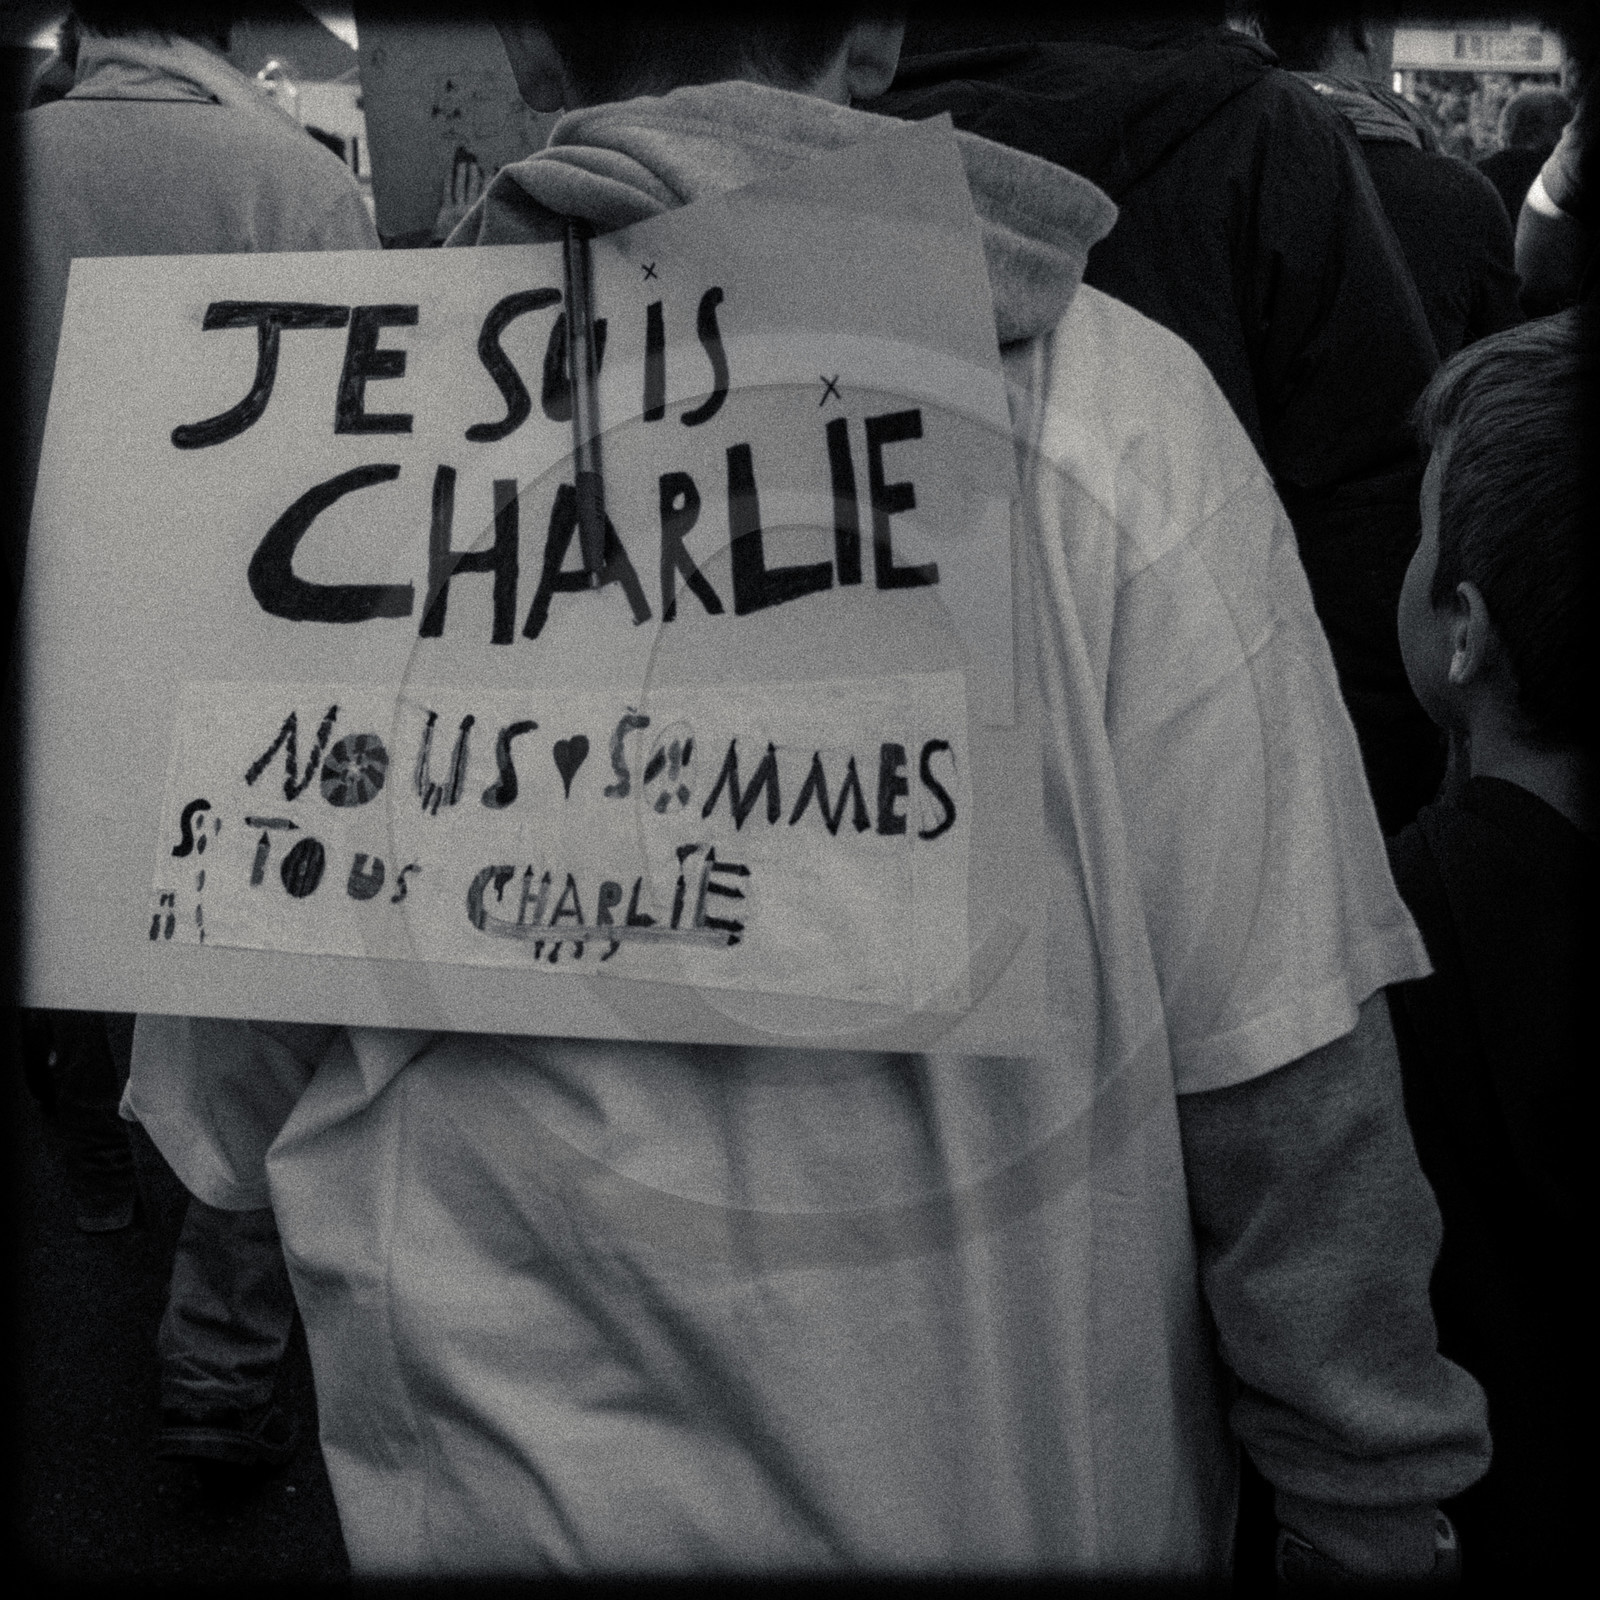 JE SUiS
CHARLiE
NOUS ♥ SOMMES
TOUS CHARLiE